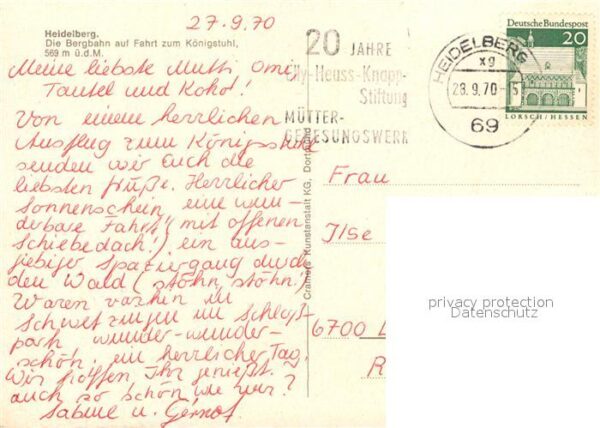 27.9.70
Heidelberg.
Die Bergbahn auf Fahrt zum Königstuhl,
569 m ü.d.M.
Meine liebste Mutti Omi,
Teufel und Koko!
Von einem herrlichen
Ausflug zum Königsstuhl
senden wir Euch die
liebsten Grüße. Herrlicher
Sonnenschein, eine wun-
derbare Fahrt (mit offenen
Schiebedach!) ein aus-
giebiger Spaziergang durch
den Wald (stöhn, stöhn!)
Waren vorhin im
Schwetzingen im Schloß-
park wunder-wunder-
schön, ein herrlicher Tag.
Wir hoffen Ihr genießt
auch so schön wie wir?
Sabine u. Gernot
20 JAHRE
Elly-Heuss-Knapp-
Stiftung
MÜTTER-
GENESUNGSWERK
HEIDELBERG
xg
28.9.70-15
69
Deutsche Bundespost
20
LORSCH/HESSEN
Cramers Kunstanstalt KG, Dortmund
Frau
Ilse
6700 L
R
privacy protection
Datenschutz